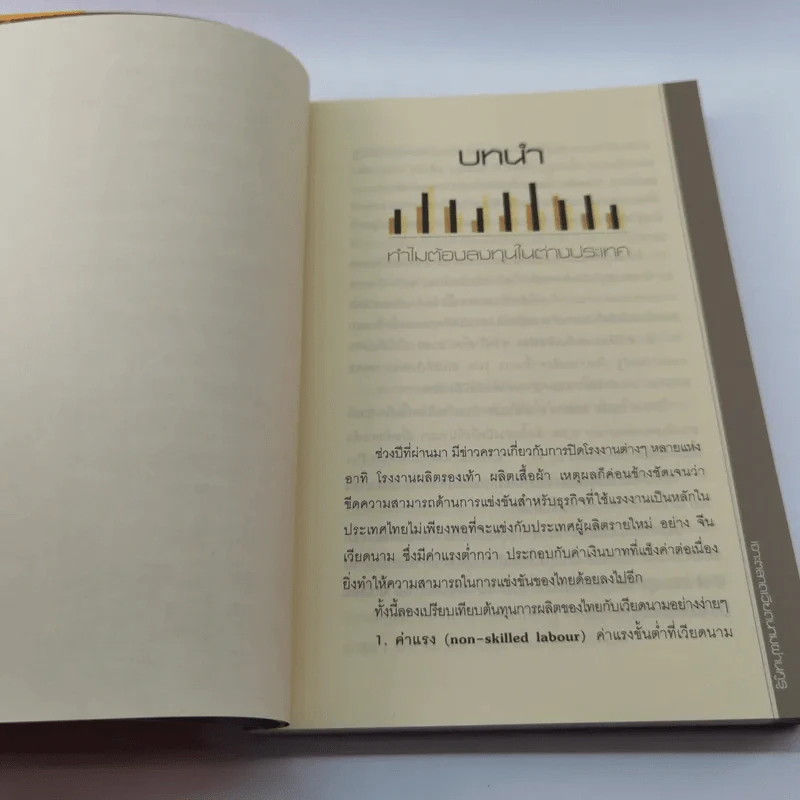 บทนำ
ทำไมต้องลงทุนในต่างประเทศ
ช่วงปีที่ผ่านมา มีข่าวคราวเกี่ยวกับการปิดโรงงานต่างๆ หลายแห่ง
อาทิ โรงงานผลิตรองเท้า ผลิตเสื้อผ้า เหตุผลก็ค่อนข้างชัดเจนว่า
ขีดความสามารถด้านการแข่งขันสำหรับธุรกิจที่ใช้แรงงานเป็นหลักใน
ประเทศไทยไม่เพียงพอที่จะแข่งกับประเทศผู้ผลิตรายใหม่ อย่าง จีน
เวียดนาม ซึ่งมีค่าแรงต่ำกว่า ประกอบกับค่าเงินบาทที่แข็งค่าต่อเนื่อง
ยิ่งทำให้ความสามารถในการแข่งขันของไทยด้อยลงไปอีก
ทั้งนี้ลองเปรียบเทียบต้นทุนการผลิตของไทยกับเวียดนามอย่างง่ายๆ
1. ค่าแรง (non-skilled labour) ค่าแรงขั้นต่ำที่เวียดนาม